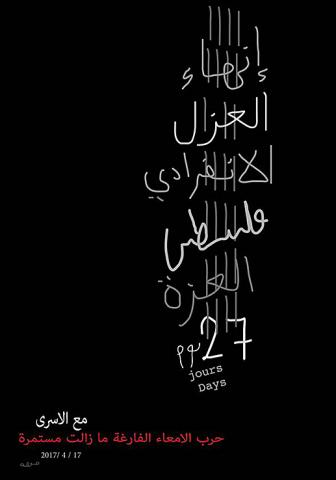 إنهاء
العزل
الانفرادي
فلسطين
العزة
27 يوم
jours
Days
مع الاسرى
حرب الامعاء الفارغة ما زالت مستمرة
2017/ 4 / 17